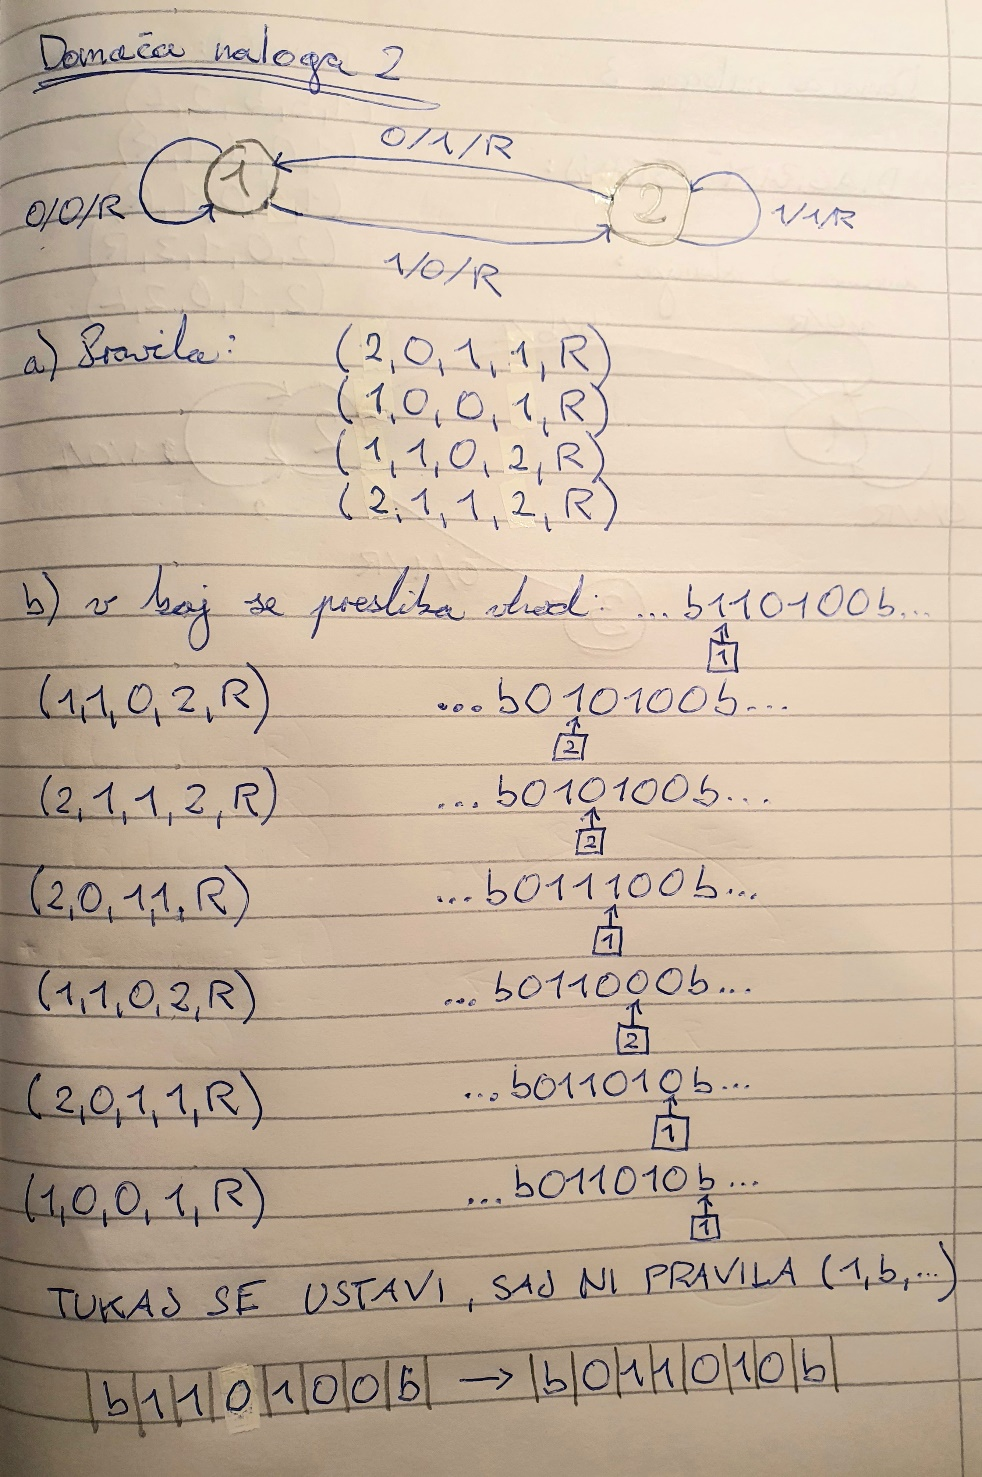 Domača naloga 2
0/1/R
1
2
0/0/R
1/1/R
1/0/R
a) Pravila: (2,0,1,1,R)
(1,0,0,1,R)
(1,1,0,2,R)
(2,1,1,2,R)
b) v kaj se preslika vhod: ...b110100b...
1
(1,1,0,2,R) ...b010100b...
2
(2,1,1,2,R) ...b010100b...
2
(2,0,1,1,R) ...b011100b...
1
(1,1,0,2,R) ...b011000b...
2
(2,0,1,1,R) ...b011010b...
1
(1,0,0,1,R) ...b011010b...
1
TUKAJ SE USTAVI, SAJ NI PRAVILA (1,b,...)
|b|1|1|0|1|0|0|b| → |b|0|1|1|0|1|0|b|